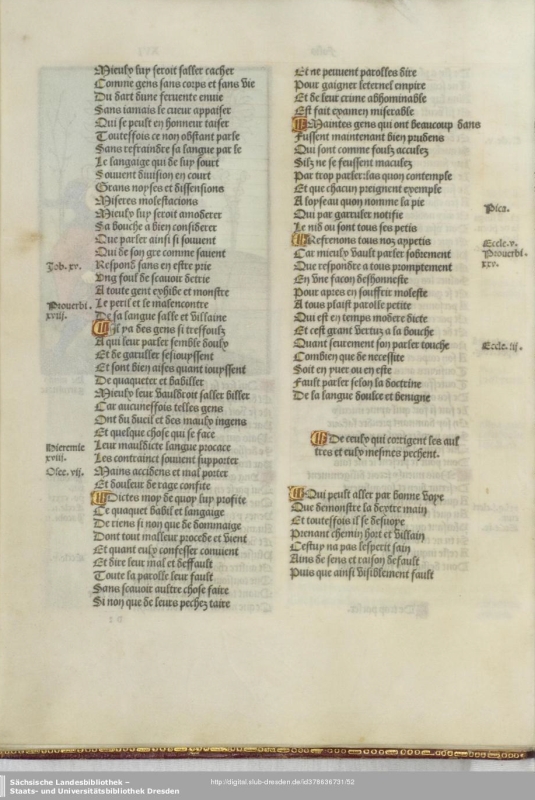 Mieulx luy seroit saller cacher
Comme gens sans corps et sans vie
Du dart dune fervente envie
Sans iamais le cueur appaiser
Qui se peult en honneur taiser
Touteffois ce non obstant parle
Sans refraindre sa langue par le
Le langaige qui de luy sourt
Souvent division en court
Grans noyses et dissensions
Miseres molestacions
Mieulx luy seroit amoderer
Sa bouche a bien considerer
Que parler ainsi si souvent
Qui de son gre comme scavent
Iob. xv.
Respond sans en estre prie
Ung foul de scavoir detrie
A toute gent exhibe et monstre
Prouerbi. xviij.
Le peril et le malencontre
De sa langue salle et villaine
Il ya des gens si tresfoulz
A qui leur parler semble doulx
Et de garuller sesiouyssent
Et sont bien aises quant iouyssent
De quaqueter et babiller
Mieulx leur vauldroit saller biller
Car aucuneffois telles gens
Ont du dueil et des maulx ingens
Et quelque chose qui se face
Hieremie xviij.
Leur mauldicte langue procace
Les contrainct souvent supporter
Osee. vij.
Mains accidens et mal porter
Et douleur de rage confite
Dictes moy de quoy luy profite
Ce quaquet babil et langaige
De riens si non que de dommaige
Dont tout malleur procede et vient
Et quant eulx confesser convient
Et dire leur mal et deffault
Toute la parolle leur fault
Sans scavoir aultre chose faire
Si non que de leurs pechez taire
Et ne peuvent parolles dire
Pour gaigner leternel empire
Et de leur crime abhominable
Est fait examen miserable
Maintes gens qui ont beaucoup dans
Fussent maintenant bien prudens
Qui sont comme foulz acculez
Silz ne se feussent maculez
Par trop parler: las quon contemple
Et que chacun preignent exemple
A loyseau quon nomme la pie
Pica.
Qui par garruler notifie
Le nid ou sont tous ses petis
Refrenons tous noz appetis
Eccle. v.
Car mieulx vault parler sobrement
Prouerbi. xxv.
Que respondre a tous promptement
En une facon deshonneste
Pour apres en souffrir moleste
A tous plaist parolle petite
Qui est en temps modere dicte
Et cest grant vertuz a la bouche
Quant seurement son parler touche
Eccle. iij.
Combien que de necessite
Soit en yver ou en este
Fault parler selon la doctrine
De la langue doulce et benigne
De ceulx qui corrigent les aul
tres et eulx mesmes pechent.
Qui peult aller par bonne voye
Que demonstre la dextre main
Et touteffois il se desvoye
Prenant chemin hort et villain
Cestuy na pas lesperit sain
Ains de sens et raison default
Puis que ainsi visiblement fault
Sächsische Landesbibliothek –
Staats- und Universitätsbibliothek Dresden
http://digital.slub-dresden.de/id378636731/52